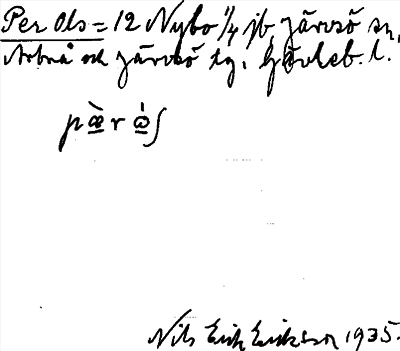 Per Ols = 12 Nybo 11/4 jb, Järvsö sn,
Arbrå och Järvsö tg. Gävleb. l.
pæ̀rω̇ʃ
Nils Erik Eriksson 1935.